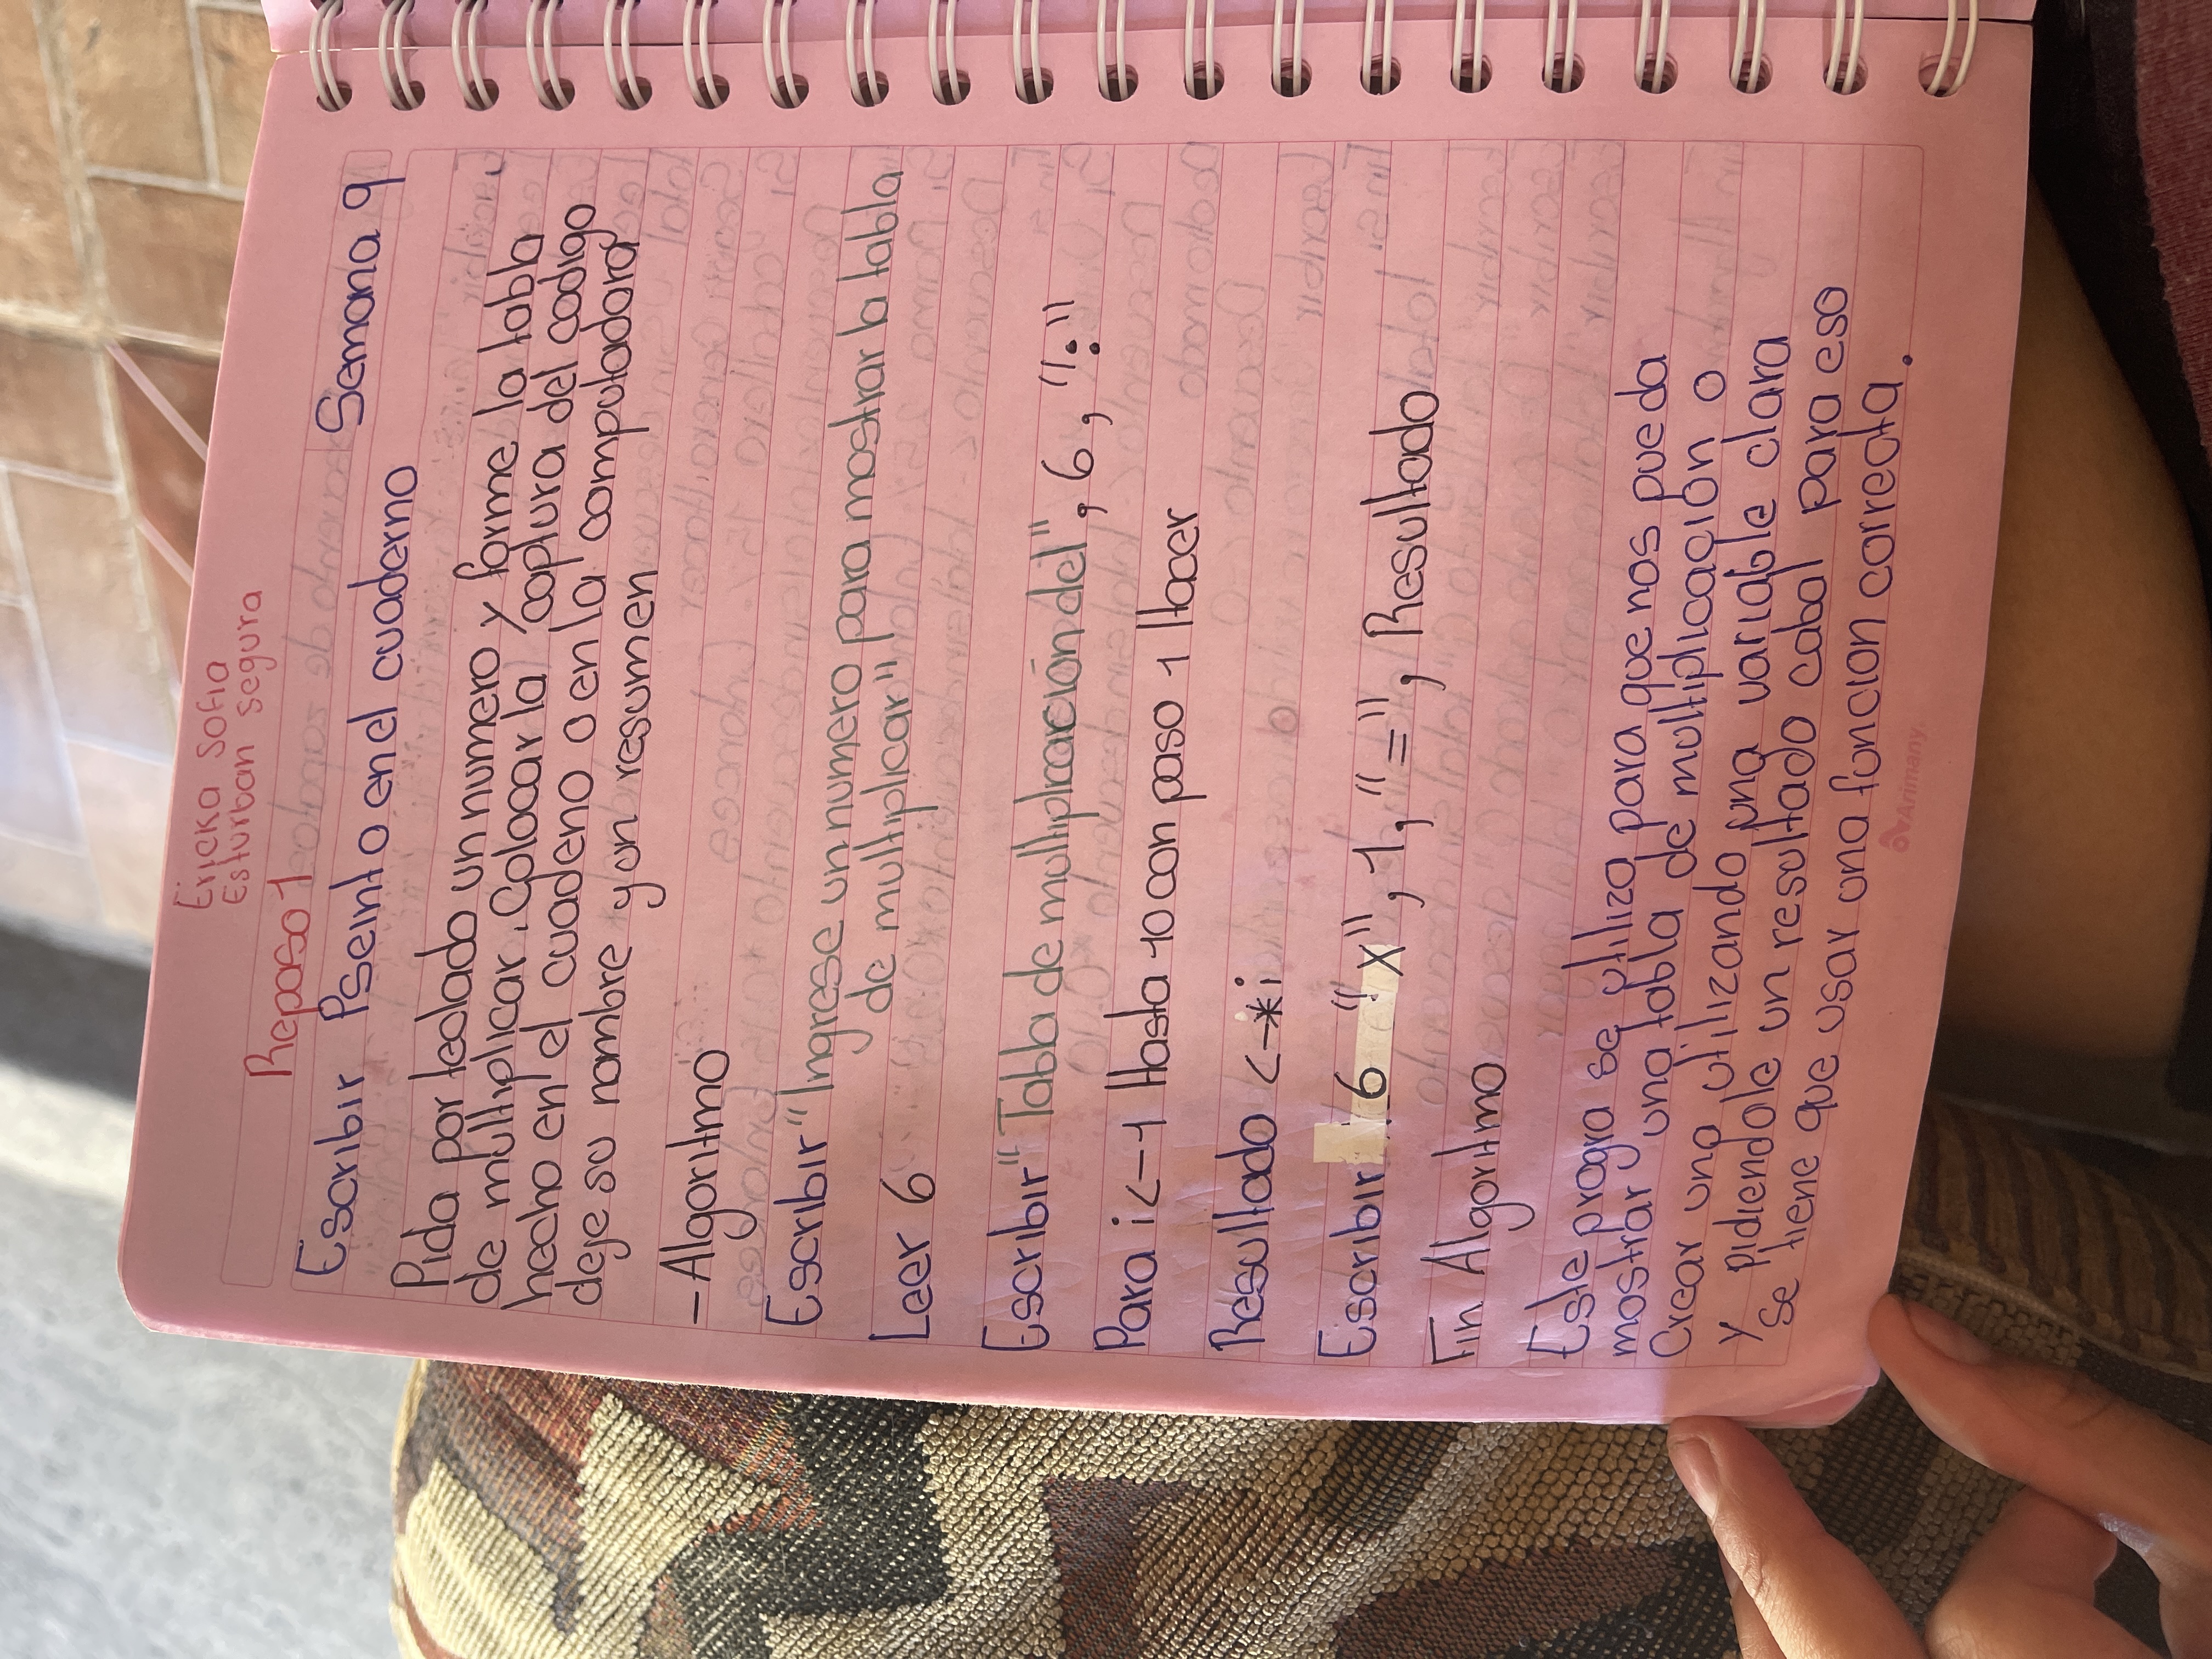 Ericka Sofia
Esturban segura
Repaso 1
Escribir Pseint o en el cuaderno
Semana 9
Pida por teclado un numero y forme la tabla
de multiplicar. Colocar la captura del codigo
hecho en el cuaderno o en la computadora
deje su nombre y un resumen
-Algoritmo
Escribir "Ingrese un numero para mostrar la tabla
de multiplicar"
Leer 6
Escribir "Tabla de multiplicación del", 6, ":"
Para i <-1 Hasta 10 con paso 1 Hacer
Resultado <-*i
Escribir 6 "x", 1, "=", Resultado
Fin Algoritmo
Este progra se utilizo para que nos pueda
mostrar una tabla de multiplicación o
Crear una utilizando una variable clara
y pidiendole un resultado cabal para eso
se tiene que usar una funcion correcta.
Arimany